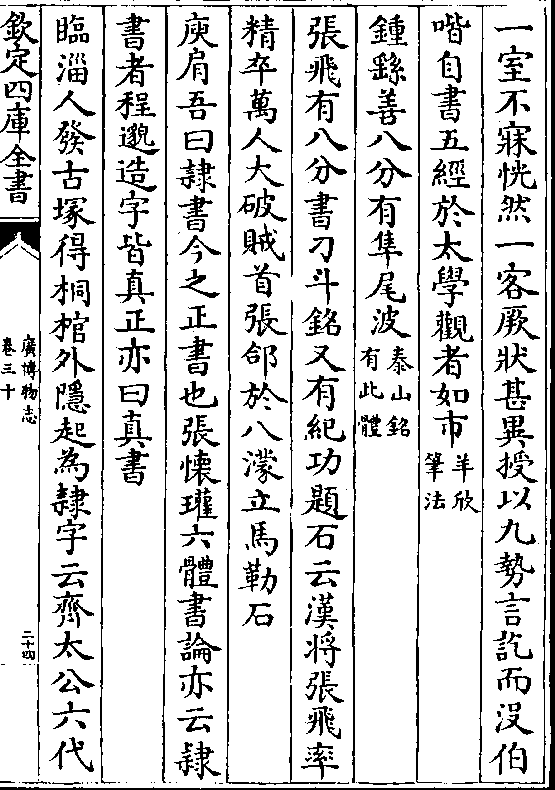 一室不寐恍然一客厥狀甚異授以九勢言訖而沒伯
喈自書五經於太學觀者如市羊欣筆法
鍾繇善八分有隼尾波泰山銘有此體
張飛有八分書刀斗銘又有紀功題石云漢將張飛率
精卒萬人大破賊首張郃於八濛立馬勒石
庾肩吾曰隸書今之正書也張懷瓘六體書論亦云隸
書者程邈造字皆真正亦曰真書
臨淄人發古塚得桐棺外隱起為隸字云齊太公六代
欽定四庫全書
廣博物志
卷三十
二十四